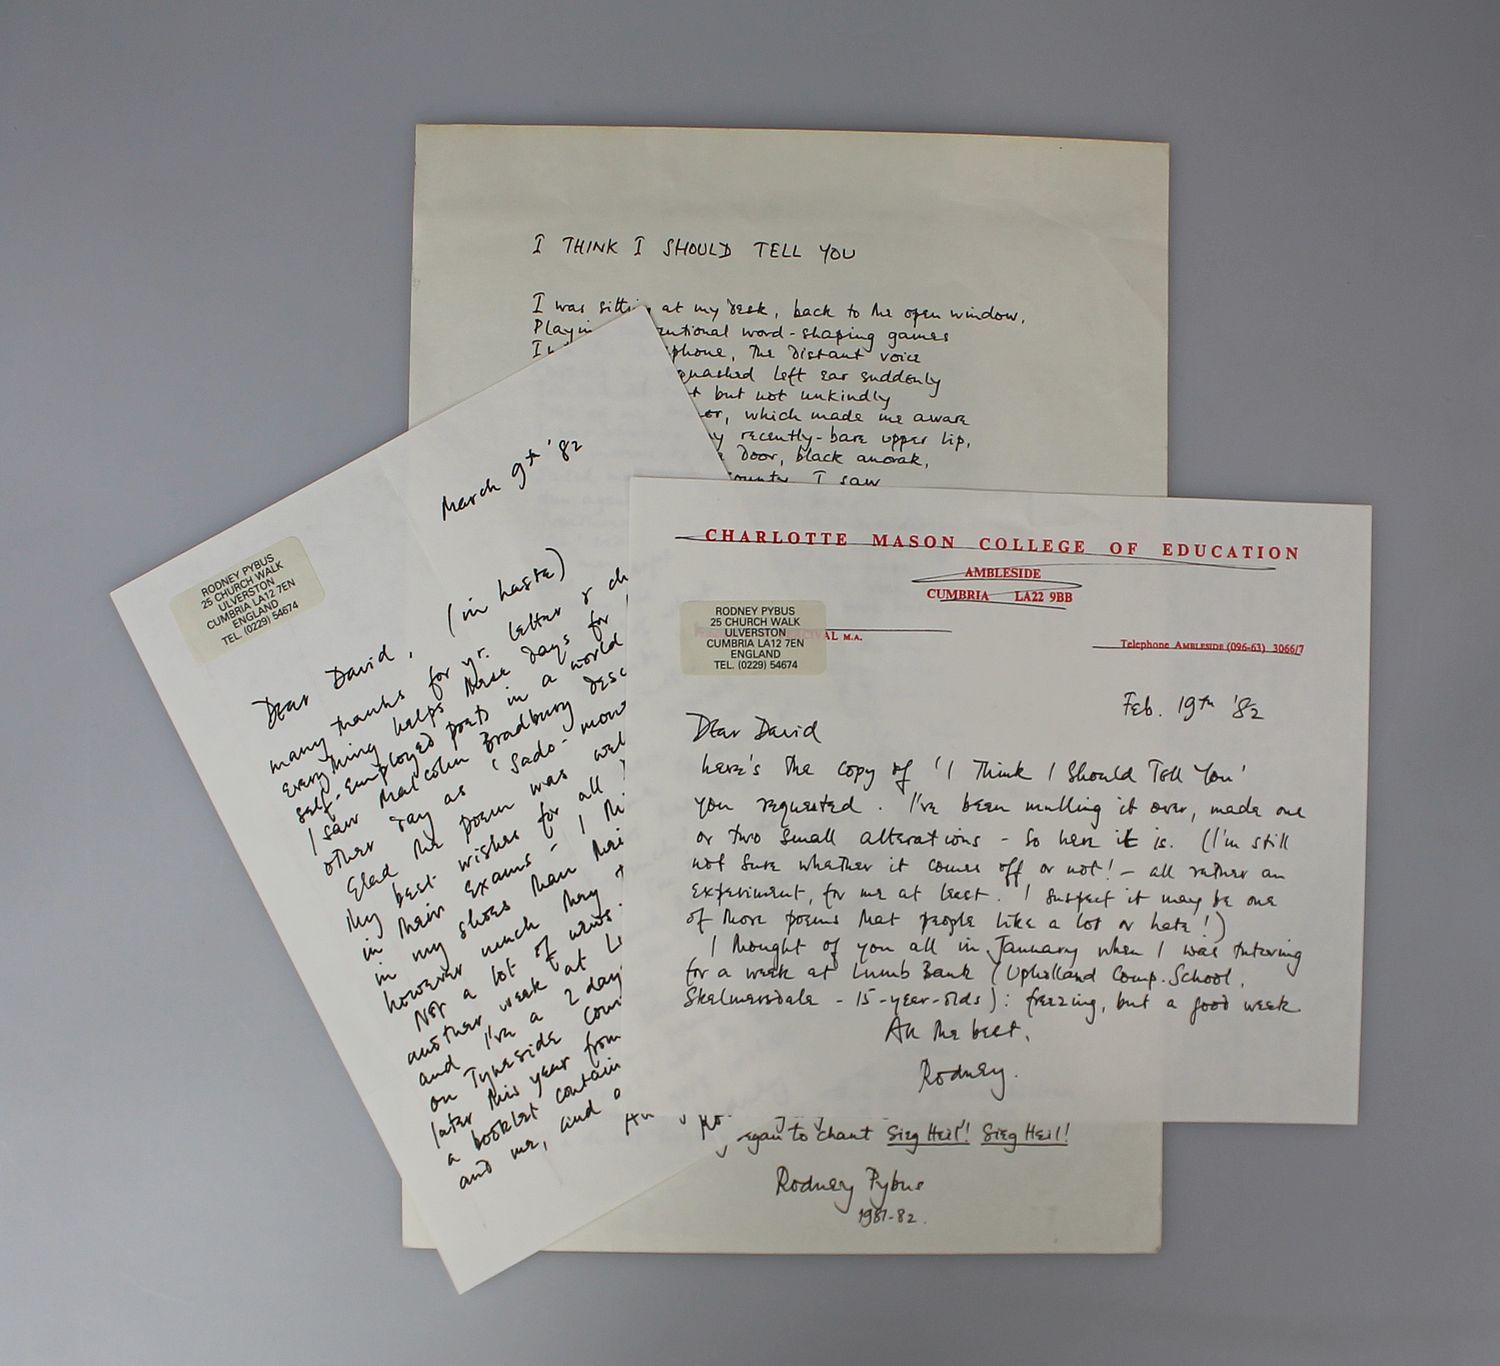 I THINK I SHOULD TELL YOU
I was at my desk, back to the open window,
word-shaping games
phone, the distant voice
squashed left ear suddenly
but not unkindly
which made me aware
recently-bare upper lip,
door, black anorak,
I saw
began to chant Sieg Heil! Sieg Heil!
Rodney Pybus
1981-82.
March 9th '82
RODNEY PYBUS
25 CHURCH WALK
ULVERSTON
CUMBRIA LA12 7EN
ENGLAND
TEL. (0229) 54674
Dear David, (in haste)
many thanks for yr. letter &
everything helps these days for
self-employed poets in a world
I saw Malcolm Bradbury
other day as 'Sado-
Glad the poem was
My best wishes for all
in their exams – I
in my shoes than
however much they
Not a lot of news.
another week at
and I've a 2 day
on Tyneside
later this year from
a booklet
and me, and
CHARLOTTE MASON COLLEGE OF EDUCATION
AMBLESIDE
CUMBRIA LA22 9BB
RODNEY PYBUS
25 CHURCH WALK
ULVERSTON
CUMBRIA LA12 7EN
ENGLAND
TEL. (0229) 54674
M.A.
Telephone AMBLESIDE (096-63) 3066/7
Feb. 19th '82
Dear David
here's the copy of 'I Think I Should Tell You'
you requested. I've been mulling it over, made one
or two small alterations – so here it is. (I'm still
not sure whether it comes off or not! – all rather an
experiment, for me at least. I suspect it may be one
of those poems that people like a lot or hate!)
I thought of you all in January when I was tutoring
for a week at Lumb Bank (Upholland Comp. School,
Skelmersdale – 15-year-olds): freezing, but a good week
All the best,
Rodney.